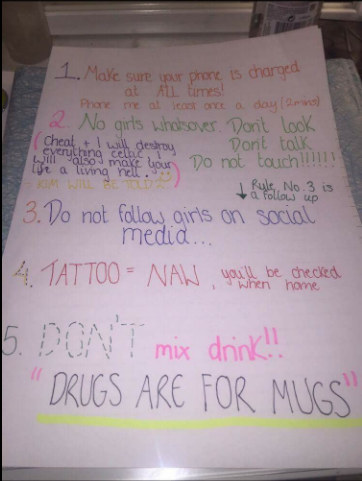 1. Make sure your phone is charged
at ALL times!
Phone me at least once a day (2mins)
2. No girls whatsover. Don't look
Don't talk
Do not touch!!!!!!
(Cheat + I will destroy
everything celtic!
Will also make your
life a living hell.)
= KIM WILL BE TOLD
↓ Rule No. 3 is
a follow up
3. Do not follow girls on social
media...
4. TATTOO = NAW, you'll be checked
when home
5. DON'T mix drink!!
"DRUGS ARE FOR MUGS"